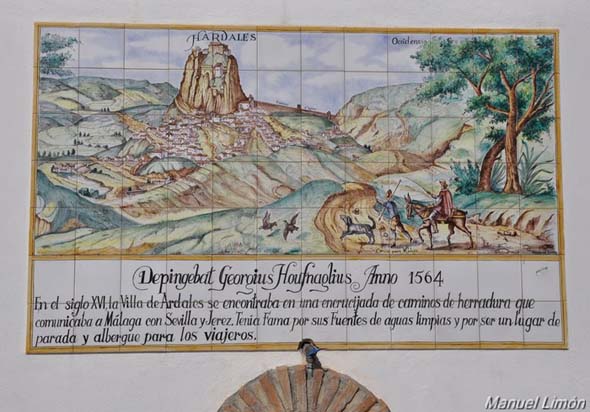 HARDALES
Depingebat Georgius Houfnaglius Anno 1564
En el siglo XVI, la Villa de Ardales se encontraba en una encrucijada de caminos de herradura que
comunicaba a Málaga con Sevilla y Jerez. Tenia Fama por sus Fuentes de aguas limpias y por ser un lugar de
parada y albergue para los viajeros.
Manuel Limón